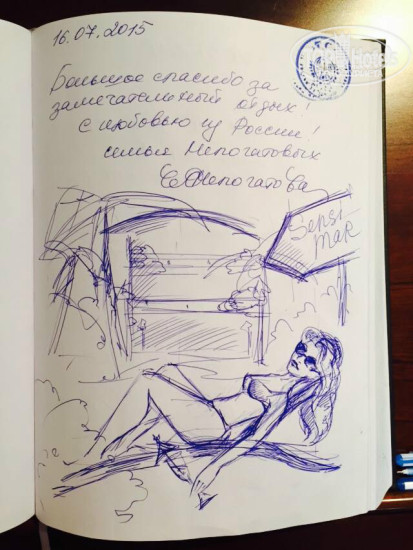 16.07.2015
Большое спасибо за
замечательный отдых!
С любовью из России!
семья Непочатовых
Непочатова
Sensi
maR